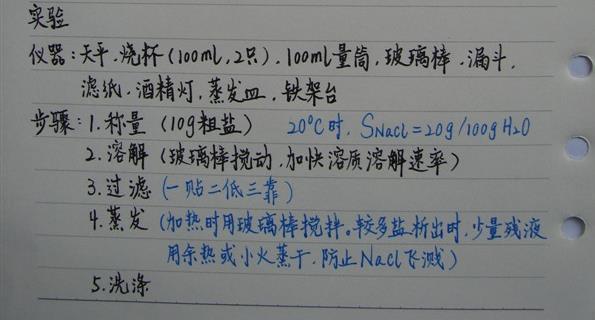 实验
仪器:天平.烧杯(100ml,2只).100ml量筒,玻璃棒.漏斗.
滤纸.酒精灯.蒸发皿.铁架台
步骤:1.称量(10g粗盐) 20℃时,SNacl=20g/100gH2O
2.溶解(玻璃棒搅动.加快溶质溶解速率)
3.过滤(一贴二低三靠)
4.蒸发(加热时用玻璃棒搅拌。较多盐析出时,少量残液
用余热或小火蒸干.防止Nacl飞溅)
5.洗涤